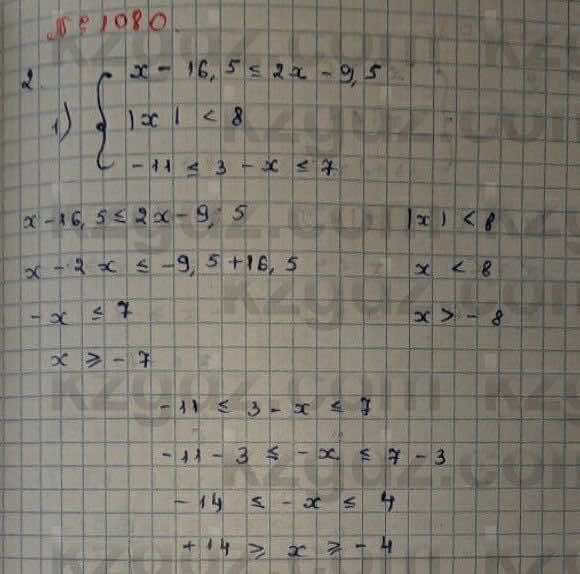 № 1080.
2.
1) { x - 16,5 ≤ 2x - 9,5
|x| < 8
-11 ≤ 3 - x ≤ 7
x - 16,5 ≤ 2x - 9,5 |x| < 8
x - 2x ≤ -9,5 + 16,5 x < 8
-x ≤ 7 x > -8
x ≥ -7
-11 ≤ 3 - x ≤ 7
-11 - 3 ≤ -x ≤ 7 - 3
-14 ≤ -x ≤ 4
+14 ≥ x ≥ -4